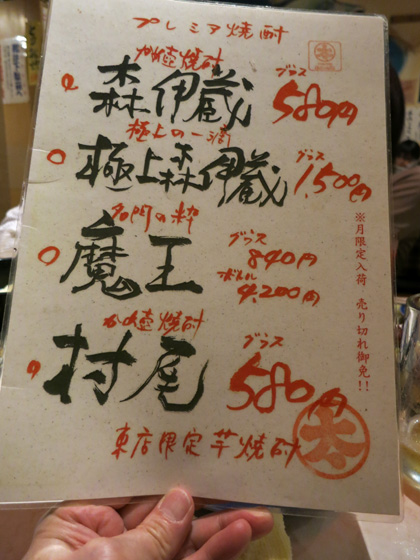 プレミア焼酎
かめ壺焼酎
森伊蔵 グラス 580円
極上の一滴
極上森伊蔵 グラス 1,500円
名門の粋
魔王 グラス 840円
ボトル 4,200円
かめ壺焼酎
村尾 グラス 580円
東店限定芋焼酎
※月限定入荷 売り切れ御免!!